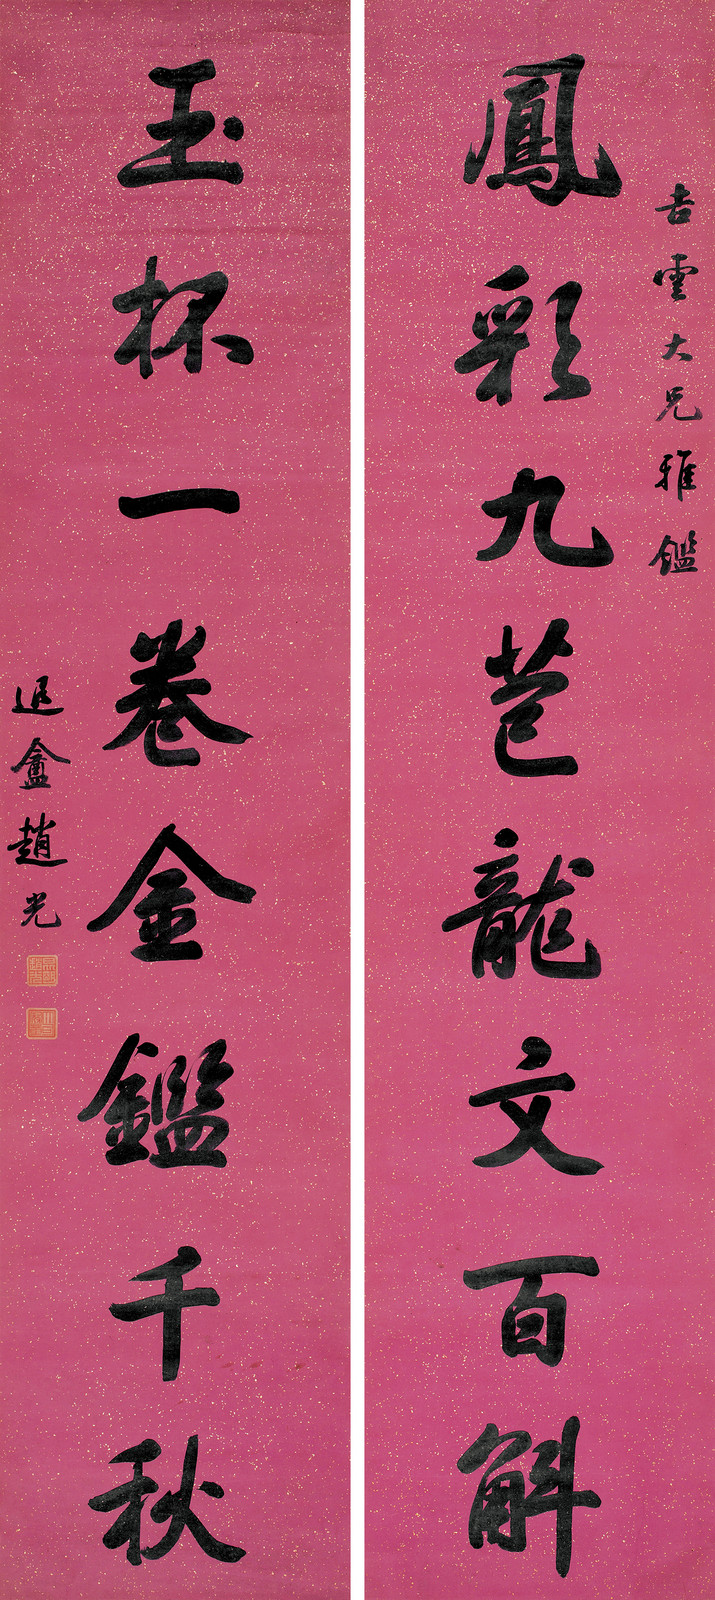 吉雲大兄雅鑑
鳳彩九苞龍文百斛
玉杯一卷金鑑千秋
退盦趙光